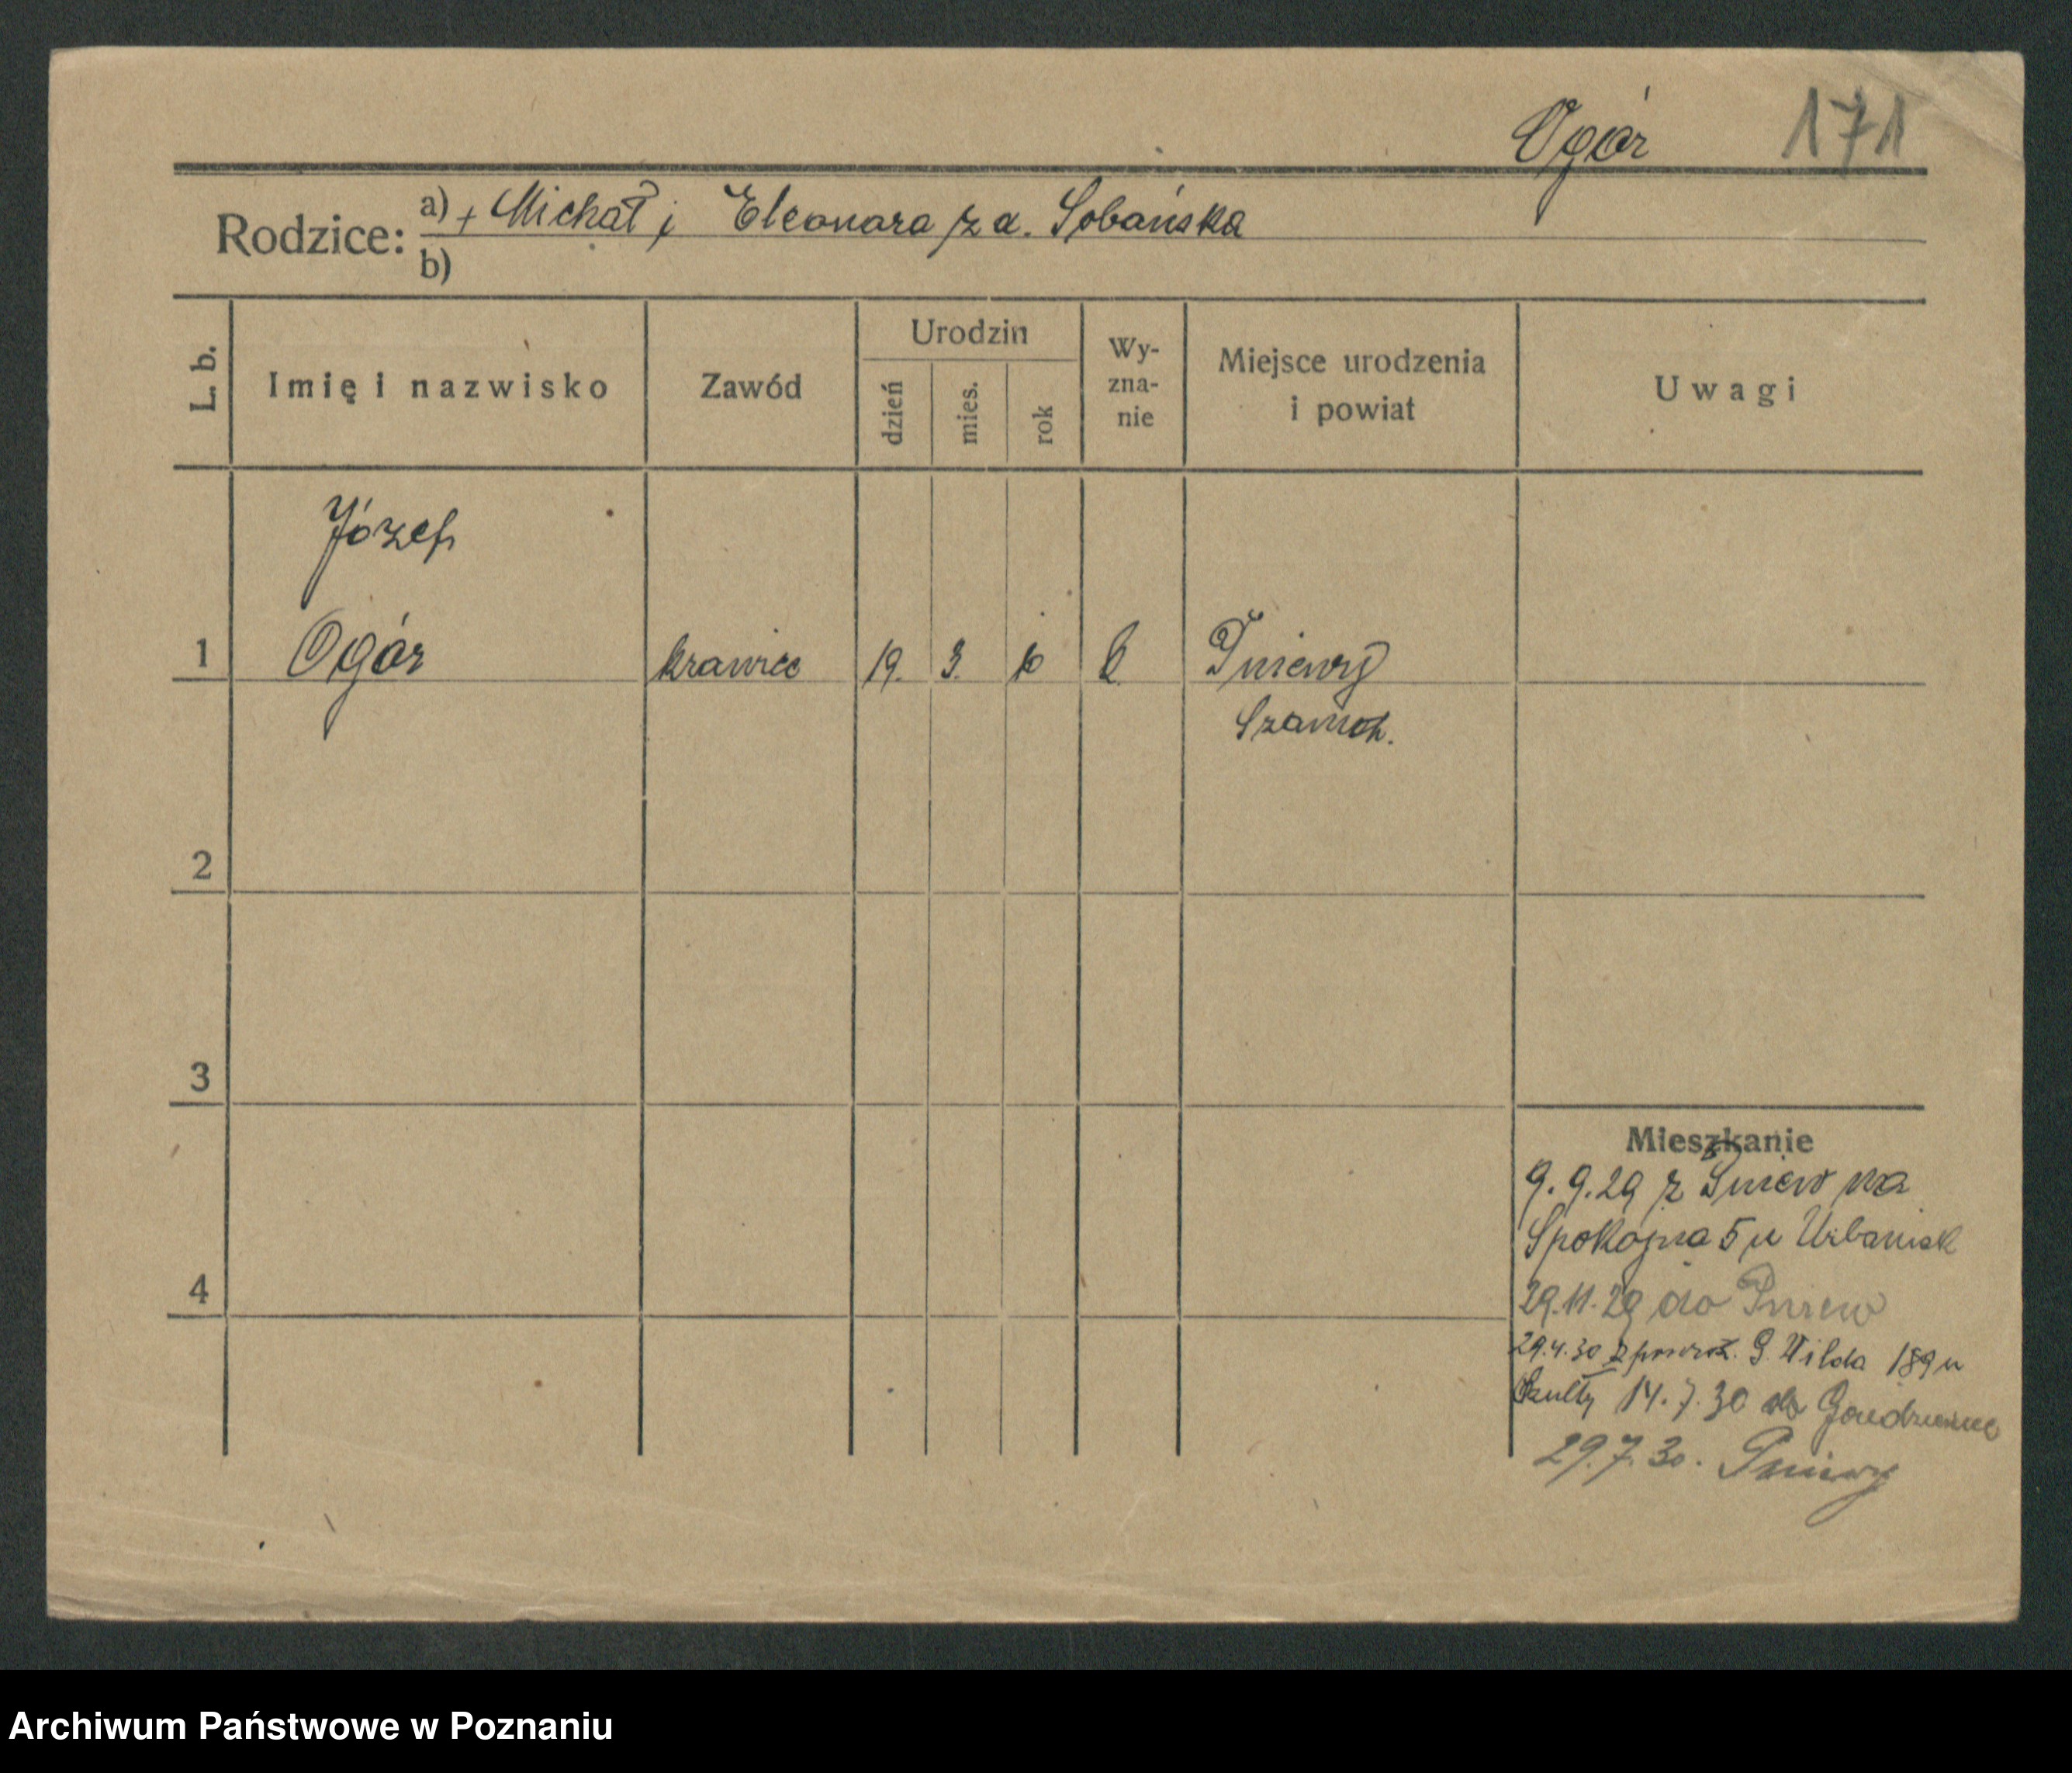 Ogór 171
Rodzice: a) + Michał i Eleonora z d. Sobańska
b)
L. b.
Imię i nazwisko
Zawód
Urodzin
dzień
mies.
rok
Wy-
zna-
nie
Miejsce urodzenia
i powiat
Uwagi
Józef
1 Ogór krawiec 19. 3. 10 Pniewy
Szamot.
2
3
4
Mieszkanie
9.9.29 z Pniew na
Spokojna 5 u Urbaniak
29.11.29 do Pniew
29.4.30 z powrot. G. Wilda 189 u
14.7.30 do
29.7.30. Pniewy
Archiwum Państwowe w Poznaniu